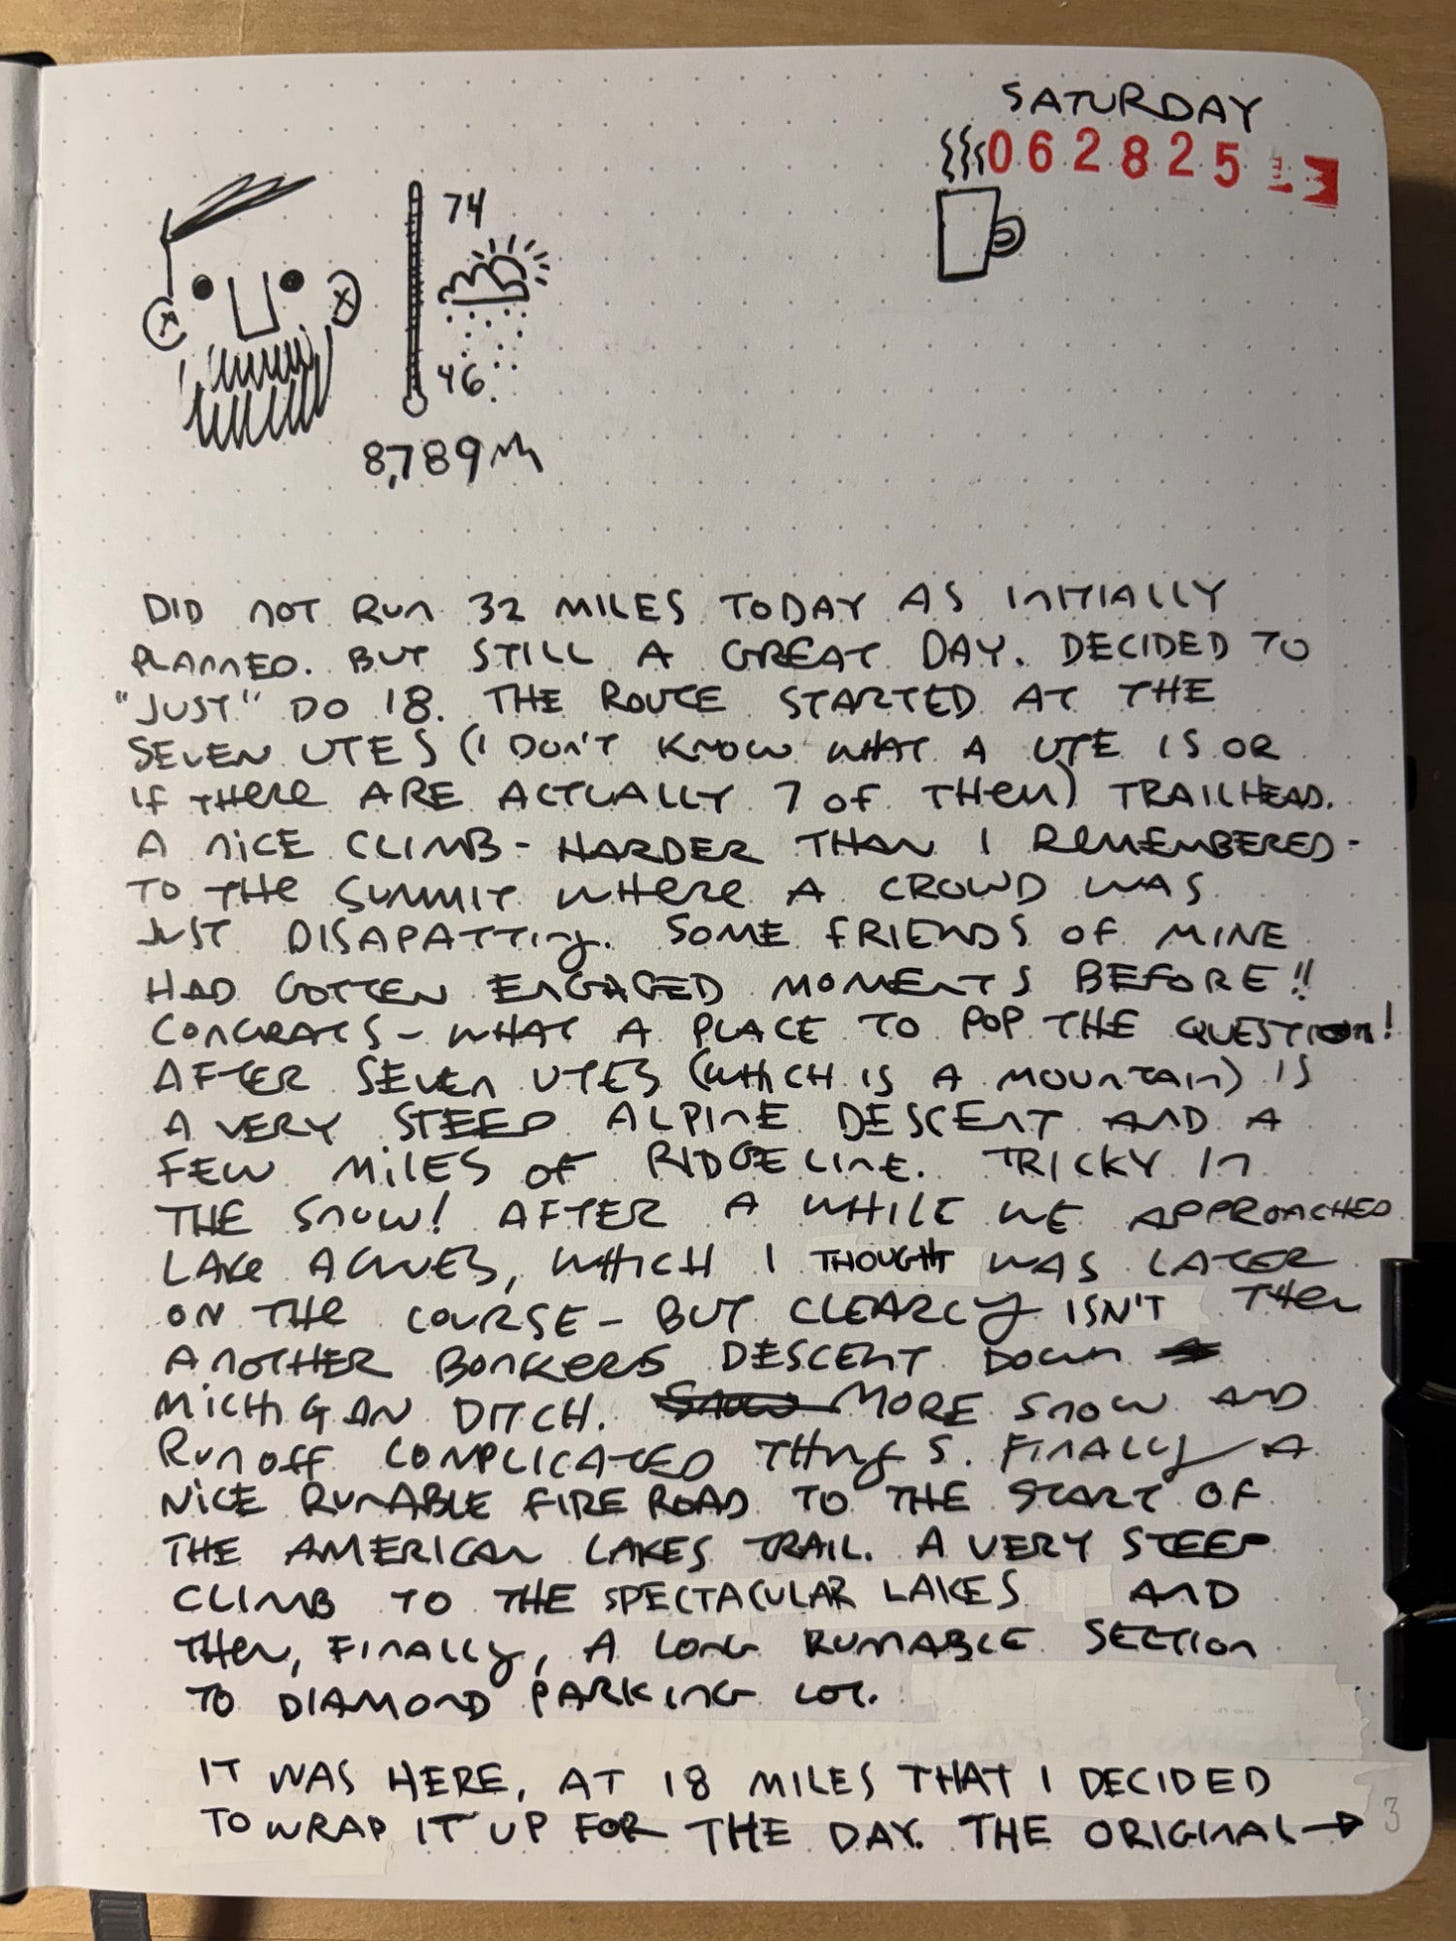 SATURDAY
062825
74
46
8,789
DID NOT RUN 32 MILES TODAY AS INITIALLY
PLANNED. BUT STILL A GREAT DAY. DECIDED TO
"JUST" DO 18. THE ROUTE STARTED AT THE
SEVEN UTES (I DON'T KNOW WHAT A UTE IS OR
IF THERE ARE ACTUALLY 7 OF THEM) TRAILHEAD.
A NICE CLIMB - HARDER THAN I REMEMBERED -
TO THE SUMMIT WHERE A CROWD WAS
JUST DISAPATTING. SOME FRIENDS OF MINE
HAD GOTTEN ENGAGED MOMENTS BEFORE!!
CONGRATS - WHAT A PLACE TO POP THE QUESTION!
AFTER SEVEN UTES (WHICH IS A MOUNTAIN) IS
A VERY STEEP ALPINE DESCENT AND A
FEW MILES OF RIDGELINE. TRICKY IN
THE SNOW! AFTER A WHILE WE APPROACHED
LAKE AGNES, WHICH I THOUGHT WAS LATER
ON THE COURSE - BUT CLEARLY ISN'T THEN
ANOTHER BONKERS DESCENT DOWN
MICHIGAN DITCH. MORE SNOW AND
RUNOFF COMPLICATED THINGS. FINALLY A
NICE RUNABLE FIRE ROAD TO THE START OF
THE AMERICAN LAKES TRAIL. A VERY STEEP
CLIMB TO THE SPECTACULAR LAKES AND
THEN, FINALLY, A LONG RUNNABLE SECTION
TO DIAMOND PARKING LOT.
IT WAS HERE, AT 18 MILES THAT I DECIDED
TO WRAP IT UP FOR THE DAY. THE ORIGINAL →
3